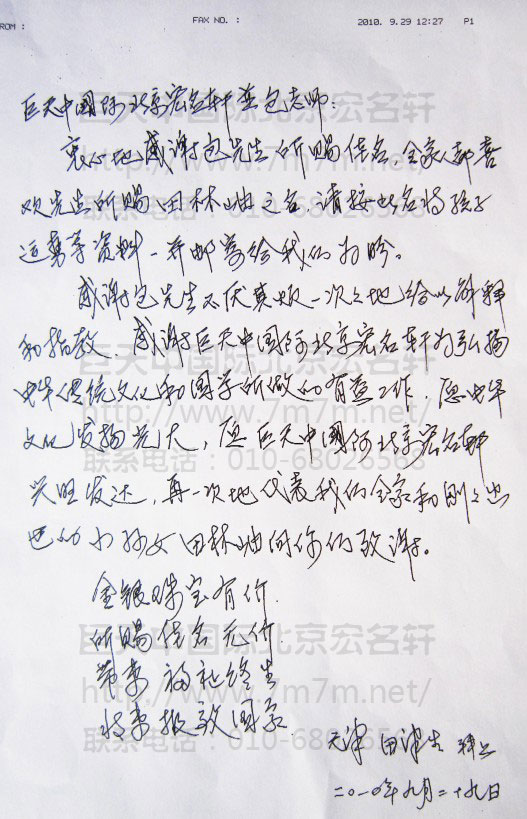 ROM : FAX NO. : 2010. 9.29 12:27 P1
巨天中国际北京宏名轩并包老师：
衷心地感谢包先生所赐佳名，全家人都喜
欢先生所赐田林岫之名，请按此名将孩子
运势等资料一并邮寄给我们为盼。
感谢包先生不厌其烦一次次地给以解释
和指教，感谢巨天中国际北京宏名轩为弘扬
中华传统文化和国学所做的有益工作，愿中华
文化发扬光大，愿巨天中国际北京宏名轩
兴旺发达，再一次地代表我们全家和刚刚出
世的小孙女田林岫向你们致谢。
金银珠宝有价
所赐佳名无价
带来福祉终生
将来报效国家
天津 田津生
二〇一〇年九月二十九日
巨天中国际北京宏名轩
http://www.7m7m.net/
联系电话：010-68026588